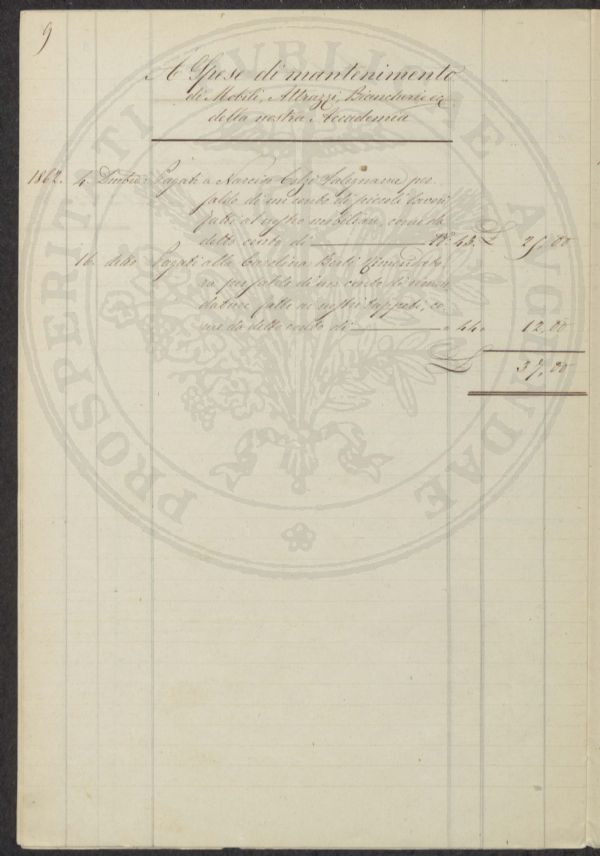 9
A Spese di mantenimento
di Mobili, Attrazzi, Biancherie ec
della nostra Accademia
1862. 4. Dmbre Pagati a Narciso Calzi Falegname per
saldo di un conto di piccoli lavori
fatti al nostro mobiliare, come da
detto conto di N. 43. £ 25,00
16. detto Pagati alla Carolina Berti
per saldo di un conto di rimen
dature fatte ai nostri tappeti, co
me da detto conto di " 44 " 12,00
£ 37,00
PROSPERITATI PVBLICAE AVGENDAE